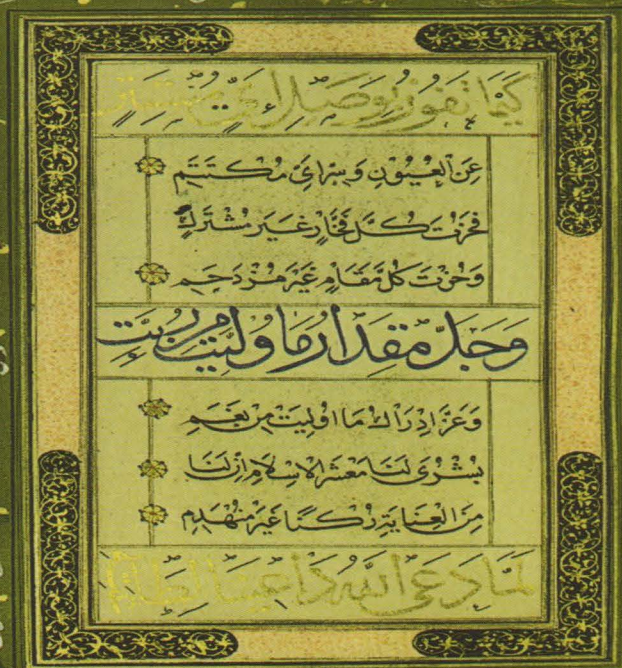 كَيْمَا تَفُوزَ بِوَصْلٍ اَيِّ مُسْتَتِرٍ
عَنِ الْعُيُونِ وَسِرٍّ اَيِّ مُكْتَتَمِ
فَحُزْتَ كُلَّ فَخَارٍ غَيْرَ مُشْتَرَكٍ
وَجُزْتَ كُلَّ مَقَامٍ غَيْرَ مُزْدَحَمِ
وَجَلَّ مِقْدَارُ مَا وُلِّيتَ مِنْ رُتَبٍ
وَعَزَّ اِدْرَاكُ مَا اُولِيتَ مِنْ نِعَمِ
بُشْرَى لَنَا مَعْشَرَ الْاِسْلَامِ اِنَّ لَنَا
مِنَ الْعِنَايَةِ رُكْنًا غَيْرَ مُنْهَدِمِ
لَمَّا دَعَى اللّٰهُ دَاعِينَا